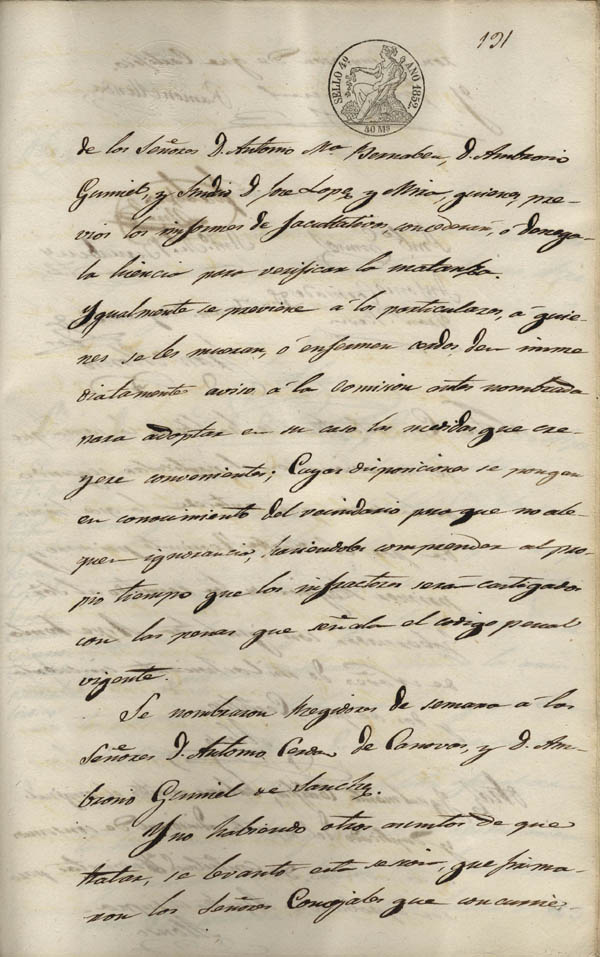 191
SELLO 4º AÑO 1852.
40 Ms
de los Señores D. Antonio Mª Bernabeu, D. Ambrosio
Gumiel, y Sindico D. Jose Lopez y Mira, quienes, pre-
vios los informes de facultativos, concederan, ó denega-
la licencia para verificar la matanza.
Ygualmente se previene á los particulares, á quie-
nes se les mueran, ó enfermen cerdos, den inme
diatamente aviso á la Comision antes nombrada
para adoptar en su caso las medidas que cre-
yere convenientes; Cuyas disposiciones se pongan
en conocimiento del vecindario para que no ale-
guen ignorancia, haciendoles comprender al pro-
pio tiempo que los infractores serán castigados
con las penas que señala el codigo penal
vigente.
Se nombraron Regidores de semana á los
Señores D. Antonio Cerdan de Canovas, y D. Am-
brosio Gumiel de Sanchez.
Y no habiendo otros asuntos de que
tratar, se levantó esta sesion, que firma-
ron los Señores Concejales que concurrie-